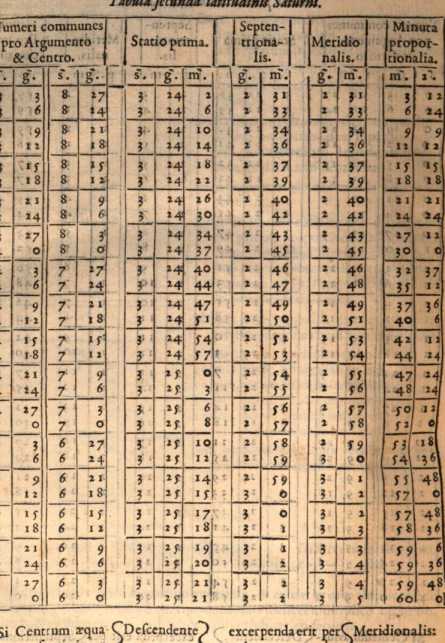 Tabula secunda latitudinis Saturni.
Numeri communes pro Argumento & Centro. Statio prima. Septentrionalis. Meridionalis. Minuta proportionalia.
g. s. g. s. g. m. g. m. g. m. m. s.
3 8 27 3 24 2 2 31 2 31 3 12
6 8 24 3 24 6 2 33 2 33 6 24
9 8 21 3 24 10 2 34 2 34 9
12 8 18 3 24 14 2 36 2 36 12 12
15 8 15 3 24 18 2 37 2 37 15 15
18 8 12 3 24 22 2 39 2 39 18 18
21 8 9 3 24 26 2 40 2 40 21 21
24 8 6 3 24 30 2 42 2 42 24 24
27 8 3 3 24 34 2 43 2 43 27 12
0 8 0 3 24 37 2 45 2 45 30 0
3 7 27 3 24 40 2 46 2 46 32 37
6 7 24 3 24 44 2 47 2 48 35 12
9 7 21 3 24 47 2 49 2 49 37 36
12 7 18 3 24 51 2 50 2 51 40 6
15 7 15 3 24 54 2 52 2 53 42 12
18 7 12 3 24 57 2 53 2 54 44 24
21 7 9 3 25 0 2 54 2 55 47 24
24 7 6 3 25 3 2 55 2 56 48 24
27 7 3 3 25 6 2 56 2 57 50 12
0 7 0 3 25 8 2 57 2 58 52 0
3 6 27 3 25 10 2 58 2 59 53 18
6 6 24 3 25 12 2 59 3 0 54 36
9 6 21 3 25 14 2 59 3 1 55 48
12 6 18 3 25 15 3 0 3 2 57 0
15 6 15 3 25 17 3 0 3 2 57 48
18 6 12 3 25 18 3 1 3 3 58 36
21 6 9 3 25 19 3 1 3 3 59 6
24 6 6 3 25 20 3 2 3 4 59 36
27 6 3 3 25 21 3 2 3 4 59 48
0 6 0 3 25 21 3 2 3 5 60 0
Si Centrum æqua Descendente excerpenda erit per Meridionalis: